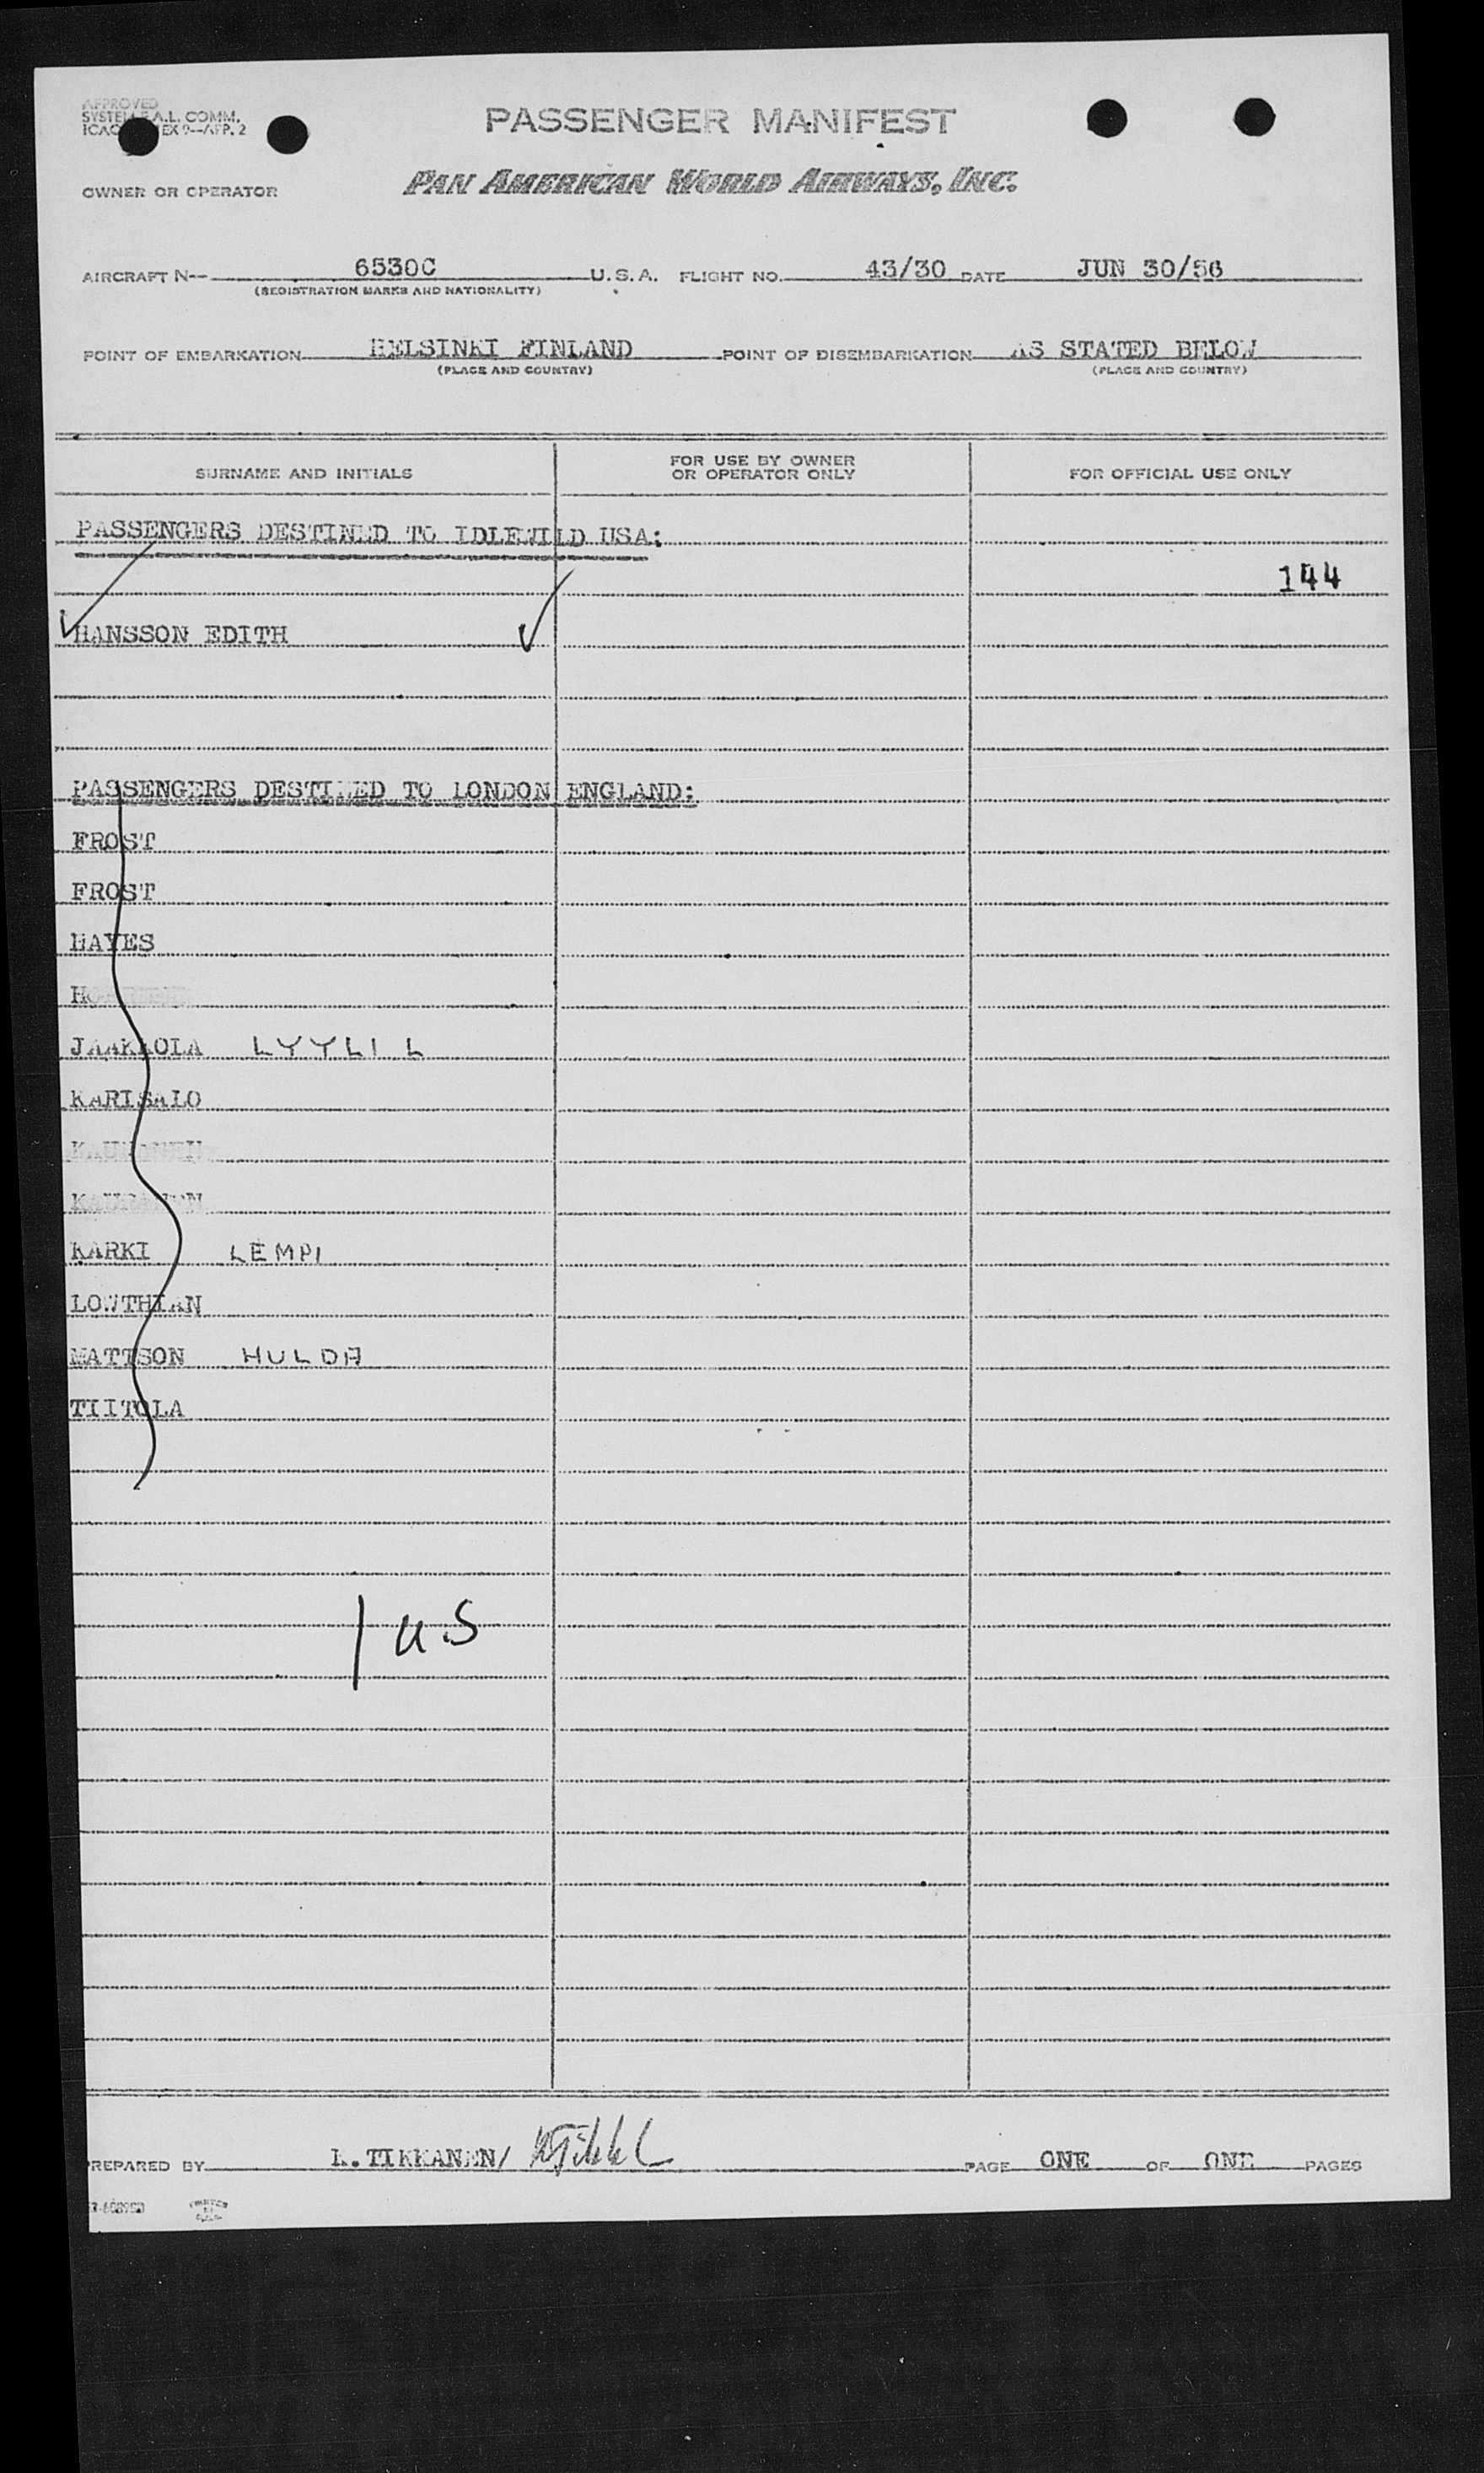 APPROVED
SYSTEM F.A.L. COMM.
ICAO EX 9--APP. 2
PASSENGER MANIFEST
OWNER OR OPERATOR PAN AMERICAN WORLD AIRWAYS, INC.
AIRCRAFT N-- 6530C U.S.A. FLIGHT NO. 43/30 DATE JUN 30/56
(REGISTRATION MARKS AND NATIONALITY)
POINT OF EMBARKATION HELSINKI FINLAND POINT OF DISEMBARKATION AS STATED BELOW
(PLACE AND COUNTRY) (PLACE AND COUNTRY)
SURNAME AND INITIALS FOR USE BY OWNER OR OPERATOR ONLY FOR OFFICIAL USE ONLY
PASSENGERS DESTINED TO IDLEWILD USA:
144
HANSSON EDITH
PASSENGERS DESTINED TO LONDON ENGLAND:
FROST
FROST
HAYES
JAAKKOLA LYYLI L
KARISALO
KARKI LEMPI
LOWTHIAN
MATTSON HULDA
TIITOLA
1 U.S
PREPARED BY L. TIKKANEN/ PAGE ONE OF ONE PAGES